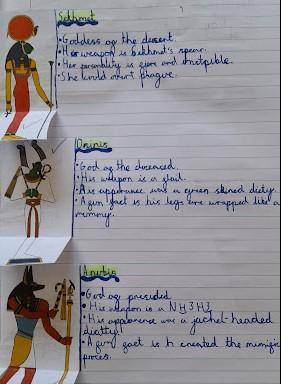 Sekhmet
•Goddess of the desert.
•Her weapon is Sekhmet's spear.
•Her personality is and
•She could avert plague.
Osiris
•God of the deceased.
•His weapon is a flail.
•His apperance was a green skined diety.
•A fun fact is his legs are wrapped like a
mummy.
Anubis
•God of
•His weapon is a N H 3 H 3
•His apperance was a jackel-headed
diatty!
•A fun fact is h created the
proces.